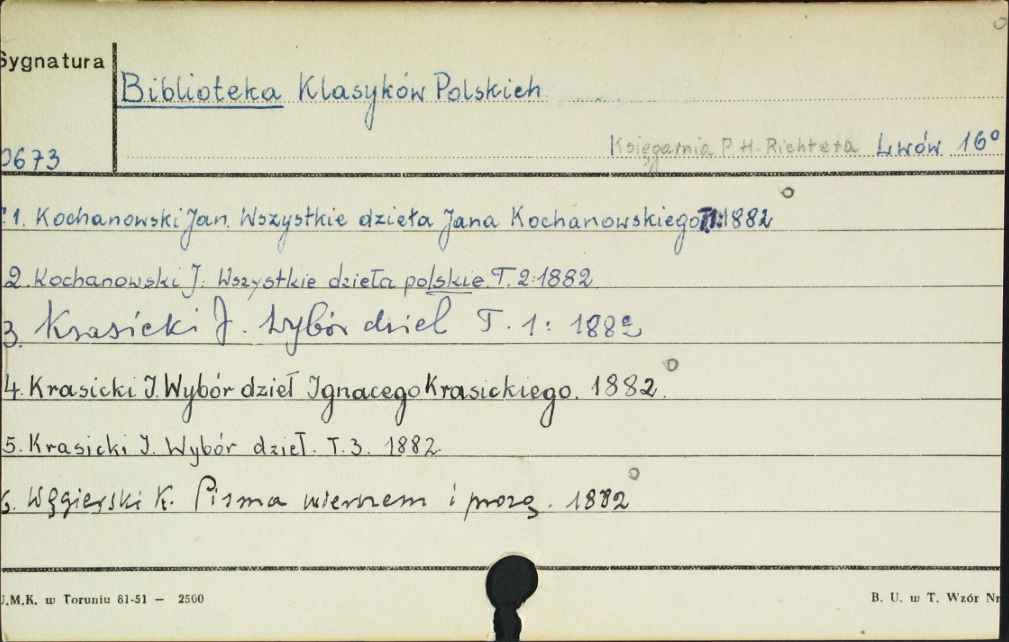 Sygnatura
Biblioteka Klasyków Polskich
0673
Księgarnia P. H. Richtera Lwów 16°
1. Kochanowski Jan. Wszystkie dzieła Jana Kochanowskiego T.1: 1882
2. Kochanowski J. Wszystkie dzieła polskie T. 2: 1882
3. Krasicki J. Wybór dzieł T. 1: 1882
4. Krasicki I. Wybór dzieł Ignacego Krasickiego. 1882.
5. Krasicki I. Wybór dzieł. T. 3. 1882
6. Węgierski K. Pisma wierszem i prozą. 1882
U.M.K. w Toruniu 81-51 — 2500
B. U. w T. Wzór Nr